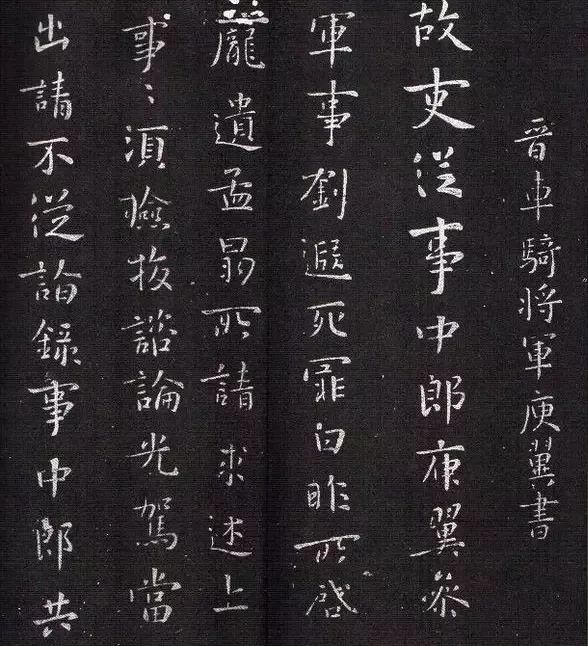 晋車騎将軍庾翼書
故吏従事中郎庾翼参
軍事劉遐死罪白昨所啓
龐遺孟昜所請求述上
事〻須檢校諮論光駕當
出請不従論録事中郎共